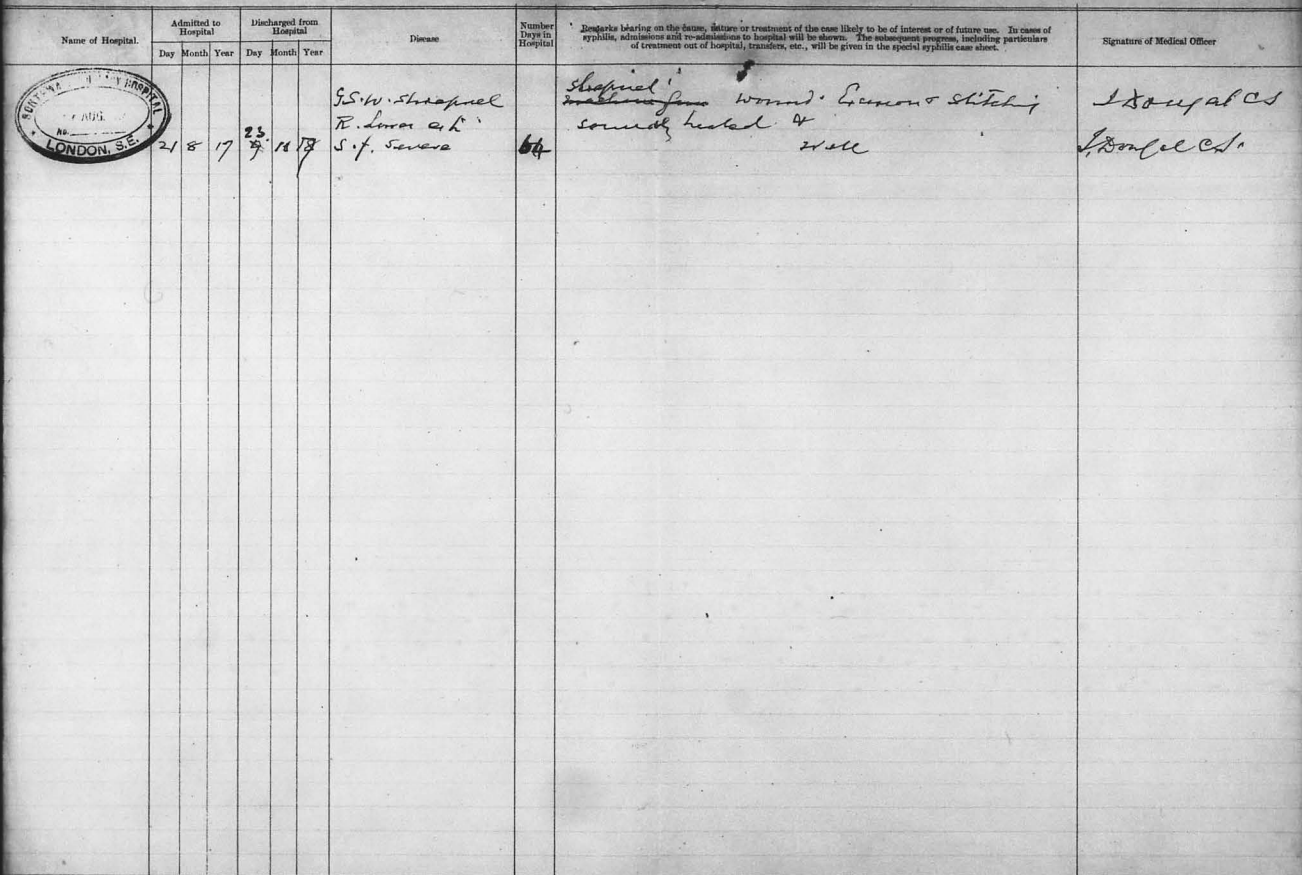 Name of Hospital.
Admitted to Hospital
Day Month Year
Discharged from Hospital
Day Month Year
Disease
Number Days in Hospital
Remarks bearing on the cause, nature or treatment of the case likely to be of interest or of future use. In cases of
syphilis, admissions and re-admissions to hospital will be shown. The subsequent progress, including particulars
of treatment out of hospital, transfers, etc., will be given in the special syphilis case sheet.
Signature of Medical Officer
HOSPITAL
AUG.
No.
LONDON, S.E.
21 8 17
23
G.S.W. Shrapnel
R. Lower
S. f. Severe
64
Shrapnel
wound. & Stitching
soundly healed &
Well
Dougal CS
Dougal C.S.